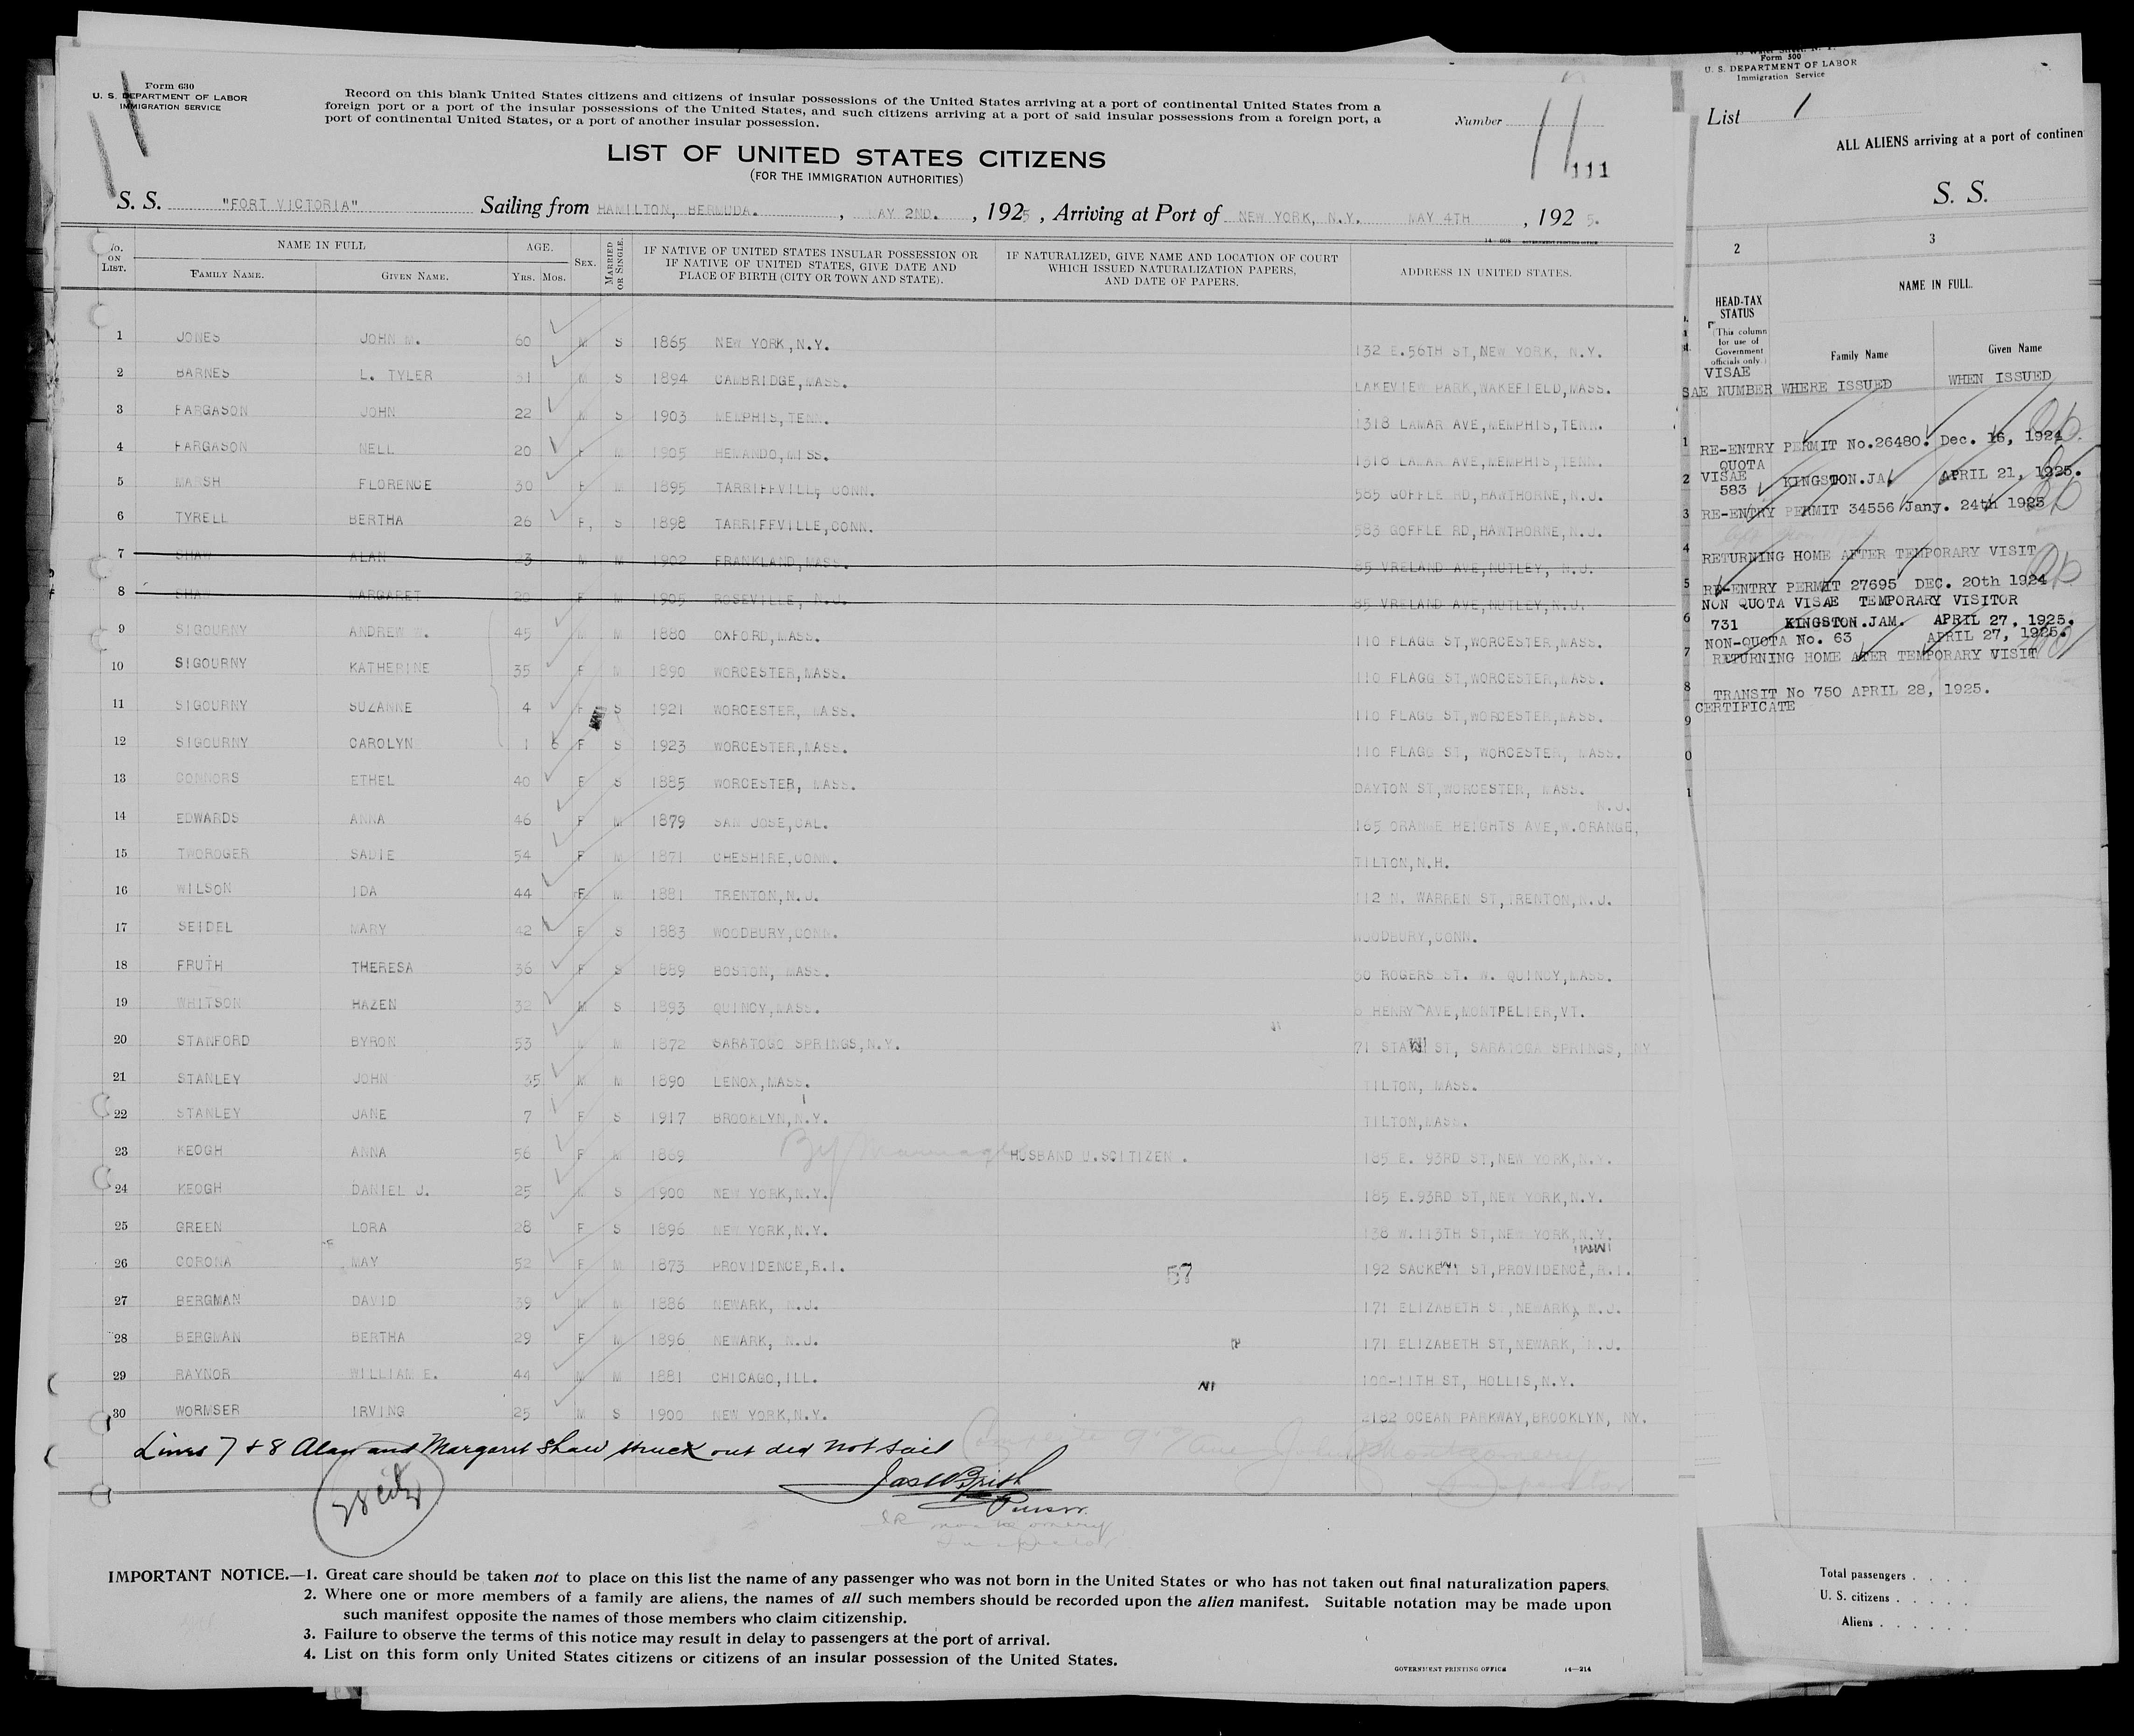 Form 630
U. S. DEPARTMENT OF LABOR
IMMIGRATION SERVICE
Record on this blank United States citizens and citizens of insular possessions of the United States arriving at a port of continental United States from a
foreign port or a port of the insular possessions of the United States, and such citizens arriving at a port of said insular possessions from a foreign port, a
port of continental United States, or a port of another insular possession.
Number 11
111
LIST OF UNITED STATES CITIZENS
(FOR THE IMMIGRATION AUTHORITIES)
S. S. "FORT VICTORIA" Sailing from HAMILTON, BERMUDA. , MAY 2ND. , 1925 , Arriving at Port of NEW YORK, N.Y. MAY 4TH , 1925.
No. ON LIST. NAME IN FULL AGE. SEX. MARRIED OR SINGLE. IF NATIVE OF UNITED STATES INSULAR POSSESSION OR IF NATIVE OF UNITED STATES, GIVE DATE AND PLACE OF BIRTH (CITY OR TOWN AND STATE). IF NATURALIZED, GIVE NAME AND LOCATION OF COURT WHICH ISSUED NATURALIZATION PAPERS, AND DATE OF PAPERS. ADDRESS IN UNITED STATES.
FAMILY NAME. GIVEN NAME. YRS. MOS.
1 JONES JOHN M. 60 M S 1865 NEW YORK,N.Y. 132 E.56TH ST,NEW YORK, N.Y.
2 BARNES L. TYLER 31 M S 1894 CAMBRIDGE,MASS. LAKEVIEW PARK,WAKEFIELD,MASS.
3 FARGASON JOHN 22 M S 1903 MEMPHIS,TENN. 1318 LAMAR AVE,MEMPHIS,TENN.
4 FARGASON NELL 20 F M 1905 HENANDO,MISS. 1318 LAMAR AVE,MEMPHIS,TENN.
5 MARSH FLORENCE 30 F M 1895 TARRIFFVILLE CONN. 585 GOFFLE RD,HAWTHORNE,N.J.
6 TYRELL BERTHA 26 F, S 1898 TARRIFFVILLE,CONN. 583 GOFFLE RD,HAWTHORNE,N.J.
7 SHAW ALAN 23 M M 1902 FRANKLAND,MASS. 85 VRELAND AVE,NUTLEY, N.J.
8 SHAW MARGARET 20 F M 1905 ROSEVILLE, N.J. 85 VRELAND AVE,NUTLEY,N.J.
9 SIGOURNY ANDREW W. 45 M M 1880 OXFORD,MASS. 110 FLAGG ST,WORCESTER,MASS.
10 SIGOURNY KATHERINE 35 F M 1890 WORCESTER,MASS. 110 FLAGG ST,WORCESTER,MASS.
11 SIGOURNY SUZANNE 4 F S 1921 WORCESTER, MASS. 110 FLAGG ST,WORCESTER,MASS.
12 SIGOURNY CAROLYN 1 6 F S 1923 WORCESTER,MASS. 110 FLAGG ST, WORCESTER, MASS.
13 CONNORS ETHEL 40 F S 1885 WORCESTER, MASS. DAYTON ST,WORCESTER, MASS.
14 EDWARDS ANNA 46 F M 1879 SAN JOSE,CAL. 165 ORANGE HEIGHTS AVE,W.ORANGE, N.J.
15 TWOROGER SADIE 54 F M 1871 CHESHIRE,CONN. TILTON,N.H.
16 WILSON IDA 44 F M 1881 TRENTON,N.J. 112 N. WARREN ST,TRENTON,N.J.
17 SEIDEL MARY 42 F S 1883 WOODBURY,CONN. WOODBURY,CONN.
18 FRUTH THERESA 36 F S 1889 BOSTON, MASS. 30 ROGERS ST. W. QUINCY,MASS.
19 WHITSON HAZEN 32 M S 1893 QUINCY,MASS. 6 HENRY AVE,MONTPELIER,VT.
20 STANFORD BYRON 53 M M 1872 SARATOGO SPRINGS,N.Y. 71 ST, SARATOGA SPRINGS, NY
21 STANLEY JOHN 35 M M 1890 LENOX,MASS. TILTON, MASS.
22 STANLEY JANE 7 F S 1917 BROOKLYN,N.Y. TILTON,MASS.
23 KEOGH ANNA 56 F M 1869 By Marriage HUSBAND U.SCITIZEN . 185 E. 93RD ST,NEW YORK,N.Y.
24 KEOGH DANIEL J. 25 M S 1900 NEW YORK,N.Y. 185 E.93RD ST,NEW YORK,N.Y.
25 GREEN LORA 28 F S 1896 NEW YORK,N.Y. 138 W.113TH ST,NEW YORK,N.Y.
26 CORONA MAY 52 F M 1873 PROVIDENCE,R.I. 57 192 SACKETT ST,PROVIDENCE,R.I.
27 BERGMAN DAVID 39 M M 1886 NEWARK, N.J. 171 ELIZABETH ST,NEWARK, N.J.
28 BERGMAN BERTHA 29 F M 1896 NEWARK, N.J. 171 ELIZABETH ST,NEWARK, N.J.
29 RAYNOR WILLIAM E. 44 M M 1881 CHICAGO,ILL. 100-11TH ST, HOLLIS,N.Y.
30 WORMSER IRVING 25 M S 1900 NEW YORK,N.Y. 2182 OCEAN PARKWAY,BROOKLYN, NY.
Lines 7 & 8 Alan and Margaret Shaw struck out did not sail
Purser
Inspector
IMPORTANT NOTICE.—1. Great care should be taken not to place on this list the name of any passenger who was not born in the United States or who has not taken out final naturalization papers.
2. Where one or more members of a family are aliens, the names of all such members should be recorded upon the alien manifest. Suitable notation may be made upon
such manifest opposite the names of those members who claim citizenship.
3. Failure to observe the terms of this notice may result in delay to passengers at the port of arrival.
4. List on this form only United States citizens or citizens of an insular possession of the United States.
GOVERNMENT PRINTING OFFICE 14—214
Form 500
U. S. DEPARTMENT OF LABOR
Immigration Service
List 1
ALL ALIENS arriving at a port of continen
S. S.
2 3
HEAD-TAX STATUS
(This column for use of Government officials only.)
NAME IN FULL.
Family Name Given Name
VISAE
SAE NUMBER WHERE ISSUED WHEN ISSUED
1 RE-ENTRY PERMIT No.26480. Dec. 16, 1924.
QUOTA
2 VISAE
583 KINGSTON.JA. APRIL 21, 1925.
3 RE-ENTRY PERMIT 34556 Jany. 24th 1925
4 RETURNING HOME AFTER TEMPORARY VISIT
5 RE-ENTRY PERMIT 27695 DEC. 20th 1924
NON QUOTA VISAE TEMPORARY VISITOR
6 731 KINGSTON.JAM. APRIL 27, 1925.
NON-QUOTA No. 63 APRIL 27, 1925.
7 RETURNING HOME ATER TEMPORARY VISIT
8 TRANSIT No 750 APRIL 28, 1925.
CERTIFICATE
9
0
1
Total passengers . . . .
U. S. citizens . . . . .
Aliens . . . . . .